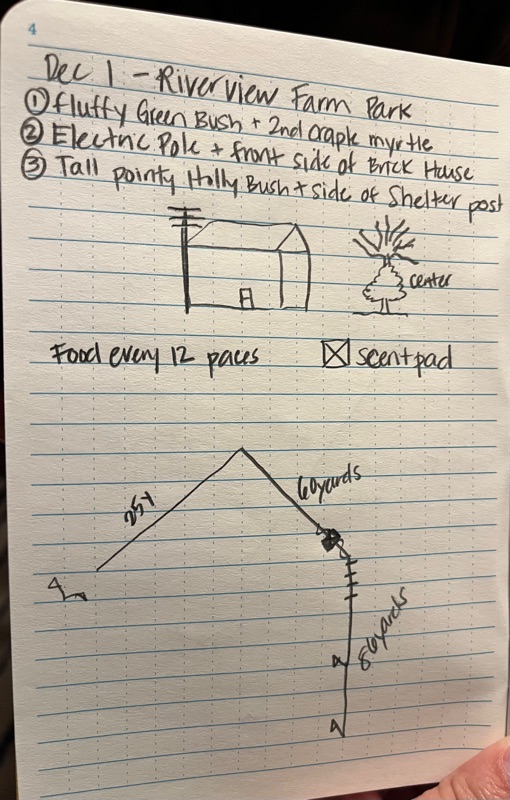 4
Dec 1 - Riverview Farm Park
① Fluffy Green Bush + 2nd craple myrtle
② Electric Pole + front side of Brick House
③ Tall pointy Holly Bush + side of Shelter post
center
Food every 12 paces
scent pad
25Y
60yards
86yards